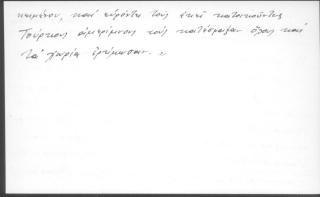 κειμένον, καί εὑρόντες τούς ἐκεῖ κατοικοῦντας
Τούρκους ἀμερίμνους τούς κατέσφαξαν ὅλους καί
τά χωρία ἐρήμωσαν.